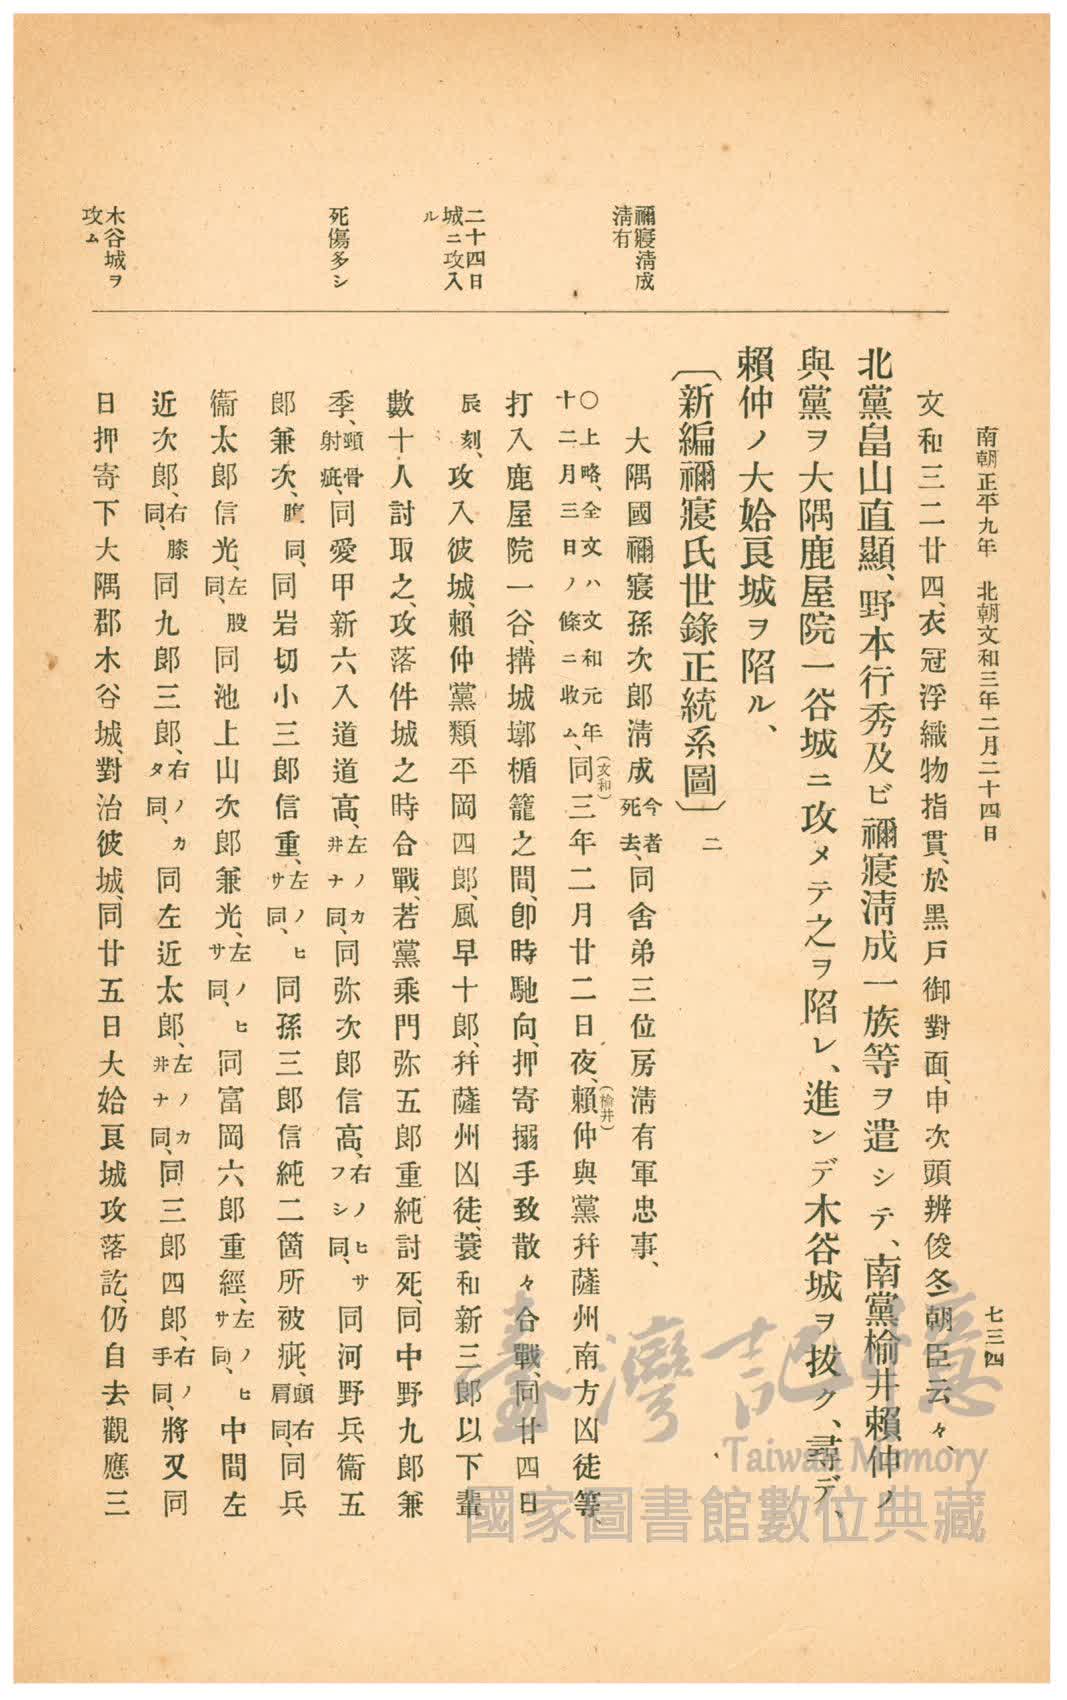 南朝正平九年 北朝文和三年二月二十四日
七三四
文和三二廿四、衣冠浮織物指貫、於黑戸御對面、申次頭辨俊冬朝臣云々、
北黨畠山直顯、野本行秀及ビ禰寢淸成一族等ヲ遣シテ、南黨楡井賴仲ノ
與黨ヲ大隅鹿屋院一谷城ニ攻メテ之ヲ陷レ、進ンデ木谷城ヲ拔ク、尋デ、
賴仲ノ大姶良城ヲ陷ル、
〔新編禰寢氏世錄正統系圖〕二
禰寢淸成
淸有
大隅國禰寢孫次郞淸成今者死去、同舍弟三位房淸有軍忠事、
〇上略、全文ハ文和元年十二月三日ノ條ニ收ム、同(文和)三年二月廿二日夜、賴(楡井)仲與黨幷薩州南方凶徒等、
打入鹿屋院一谷、搆城墎楯籠之間、卽時馳向、押寄搦手致散々合戰、同廿四日
二十四日
城ニ攻入
ル
辰刻、攻入彼城、賴仲黨類平岡四郞、風早十郞、幷薩州凶徒、蓑和新三郞以下輩
數十人討取之、攻落件城之時合戰、若黨乘門弥五郞重純討死、同中野九郞兼
死傷多シ
季、頸骨射疵、同愛甲新六入道道高、左ノカ井ナ同、同弥次郞信高、右ノヒサフシ同、同河野兵衞五
郞兼次、腹同、同岩切小三郞信重、左ノヒサ同、同孫三郞信純二箇所被疵、頭右肩同、同兵
衞太郞信光、左股同、同池上山次郞兼光、左ノヒサ同、同富岡六郞重經、左ノヒサ同、中間左
近次郞、右膝同、同九郞三郞、右ノカタ同、同左近太郞、左ノカ井ナ同、同三郞四郞、右ノ手同、將又同
木谷城ヲ
攻ム
日押寄下大隅郡木谷城、對治彼城、同廿五日大姶良城攻落訖、仍自去觀應三
臺灣記憶
Taiwan Memory
國家圖書館數位典藏